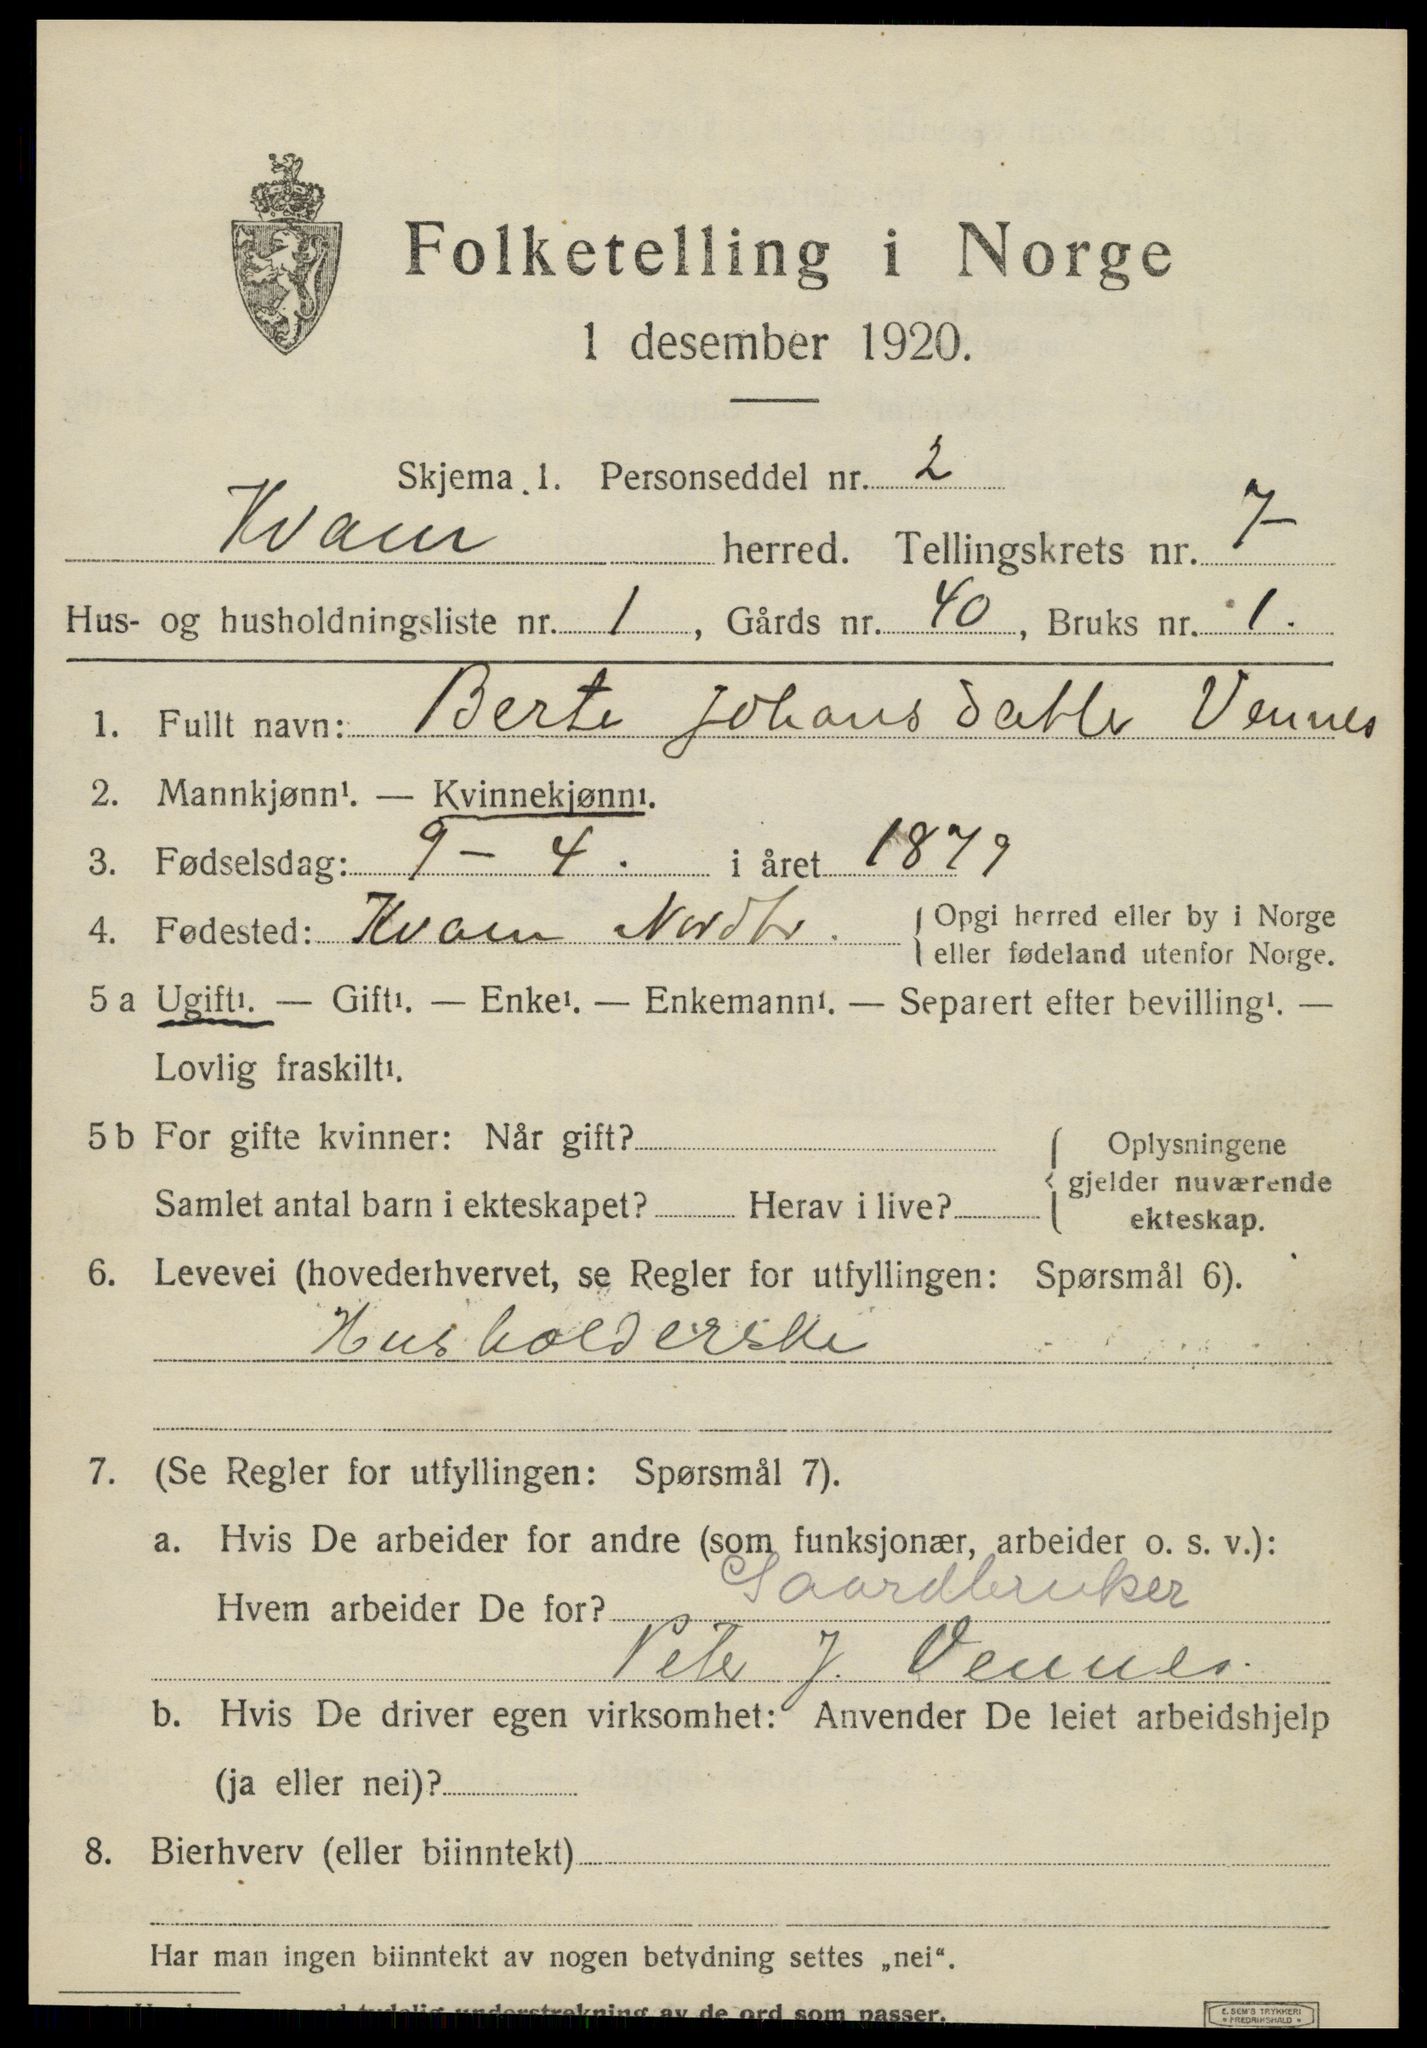 Folketelling i Norge
1 desember 1920.
Skjema 1. Personseddel nr. 2
Kvam herred. Tellingskrets nr. 7
Hus- og husholdningsliste nr. 1, Gårds nr. 40, Bruks nr. 1.
1. Fullt navn: Berte Johansdatter Vennes
2. Mannkjønn¹. — Kvinnekjønn¹.
3. Fødselsdag: 9 – 4. i året 1879
4. Fødested: Kvam Nordtr. { Opgi herred eller by i Norge
eller fødeland utenfor Norge.
5 a Ugift¹. — Gift¹. — Enke¹. — Enkemann¹. — Separert efter bevilling¹. —
Lovlig fraskilt¹.
5 b For gifte kvinner: Når gift?
Samlet antal barn i ekteskapet? Herav i live?
{ Oplysningene
gjelder nuværende
ekteskap.
6. Levevei (hovederhvervet, se Regler for utfyllingen: Spørsmål 6).
Husholderske
7. (Se Regler for utfyllingen: Spørsmål 7).
a. Hvis De arbeider for andre (som funksjonær, arbeider o. s. v.):
Hvem arbeider De for? Gaardbruker
Peter J. Vennes.
b. Hvis De driver egen virksomhet: Anvender De leiet arbeidshjelp
(ja eller nei)?
8. Bierhverv (eller biinntekt)
Har man ingen biinntekt av nogen betydning settes „nei“.
tydelig understrekning av de ord som passer.
E. SEM'S TRYKKERI
• FREDRIKSHALD •